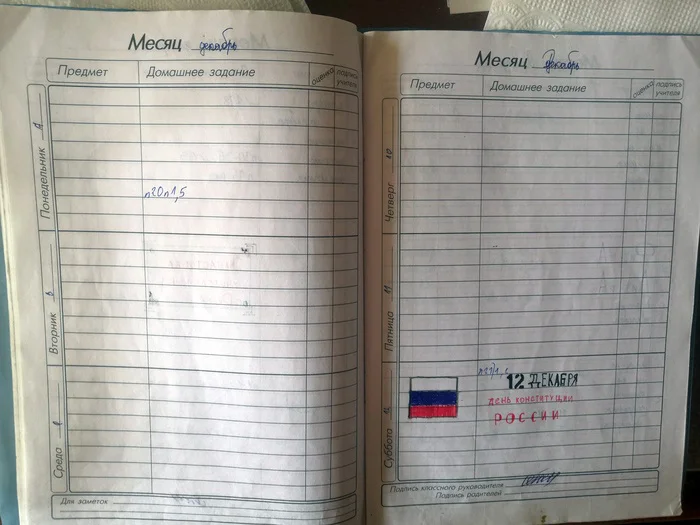 Месяц декабрь
Предмет Домашнее задание оценка подпись учителя
Понедельник
п20п1,5
Вторник
Среда 9
Для заметок
Месяц Декабрь
Предмет Домашнее задание оценка подпись учителя
Четверг 10
Пятница 11
Суббота 12
12 ДЕКАБРЯ
ДЕНЬ КОНСТИТУЦИИ
РОССИИ
Подпись классного руководителя
Подпись родителей